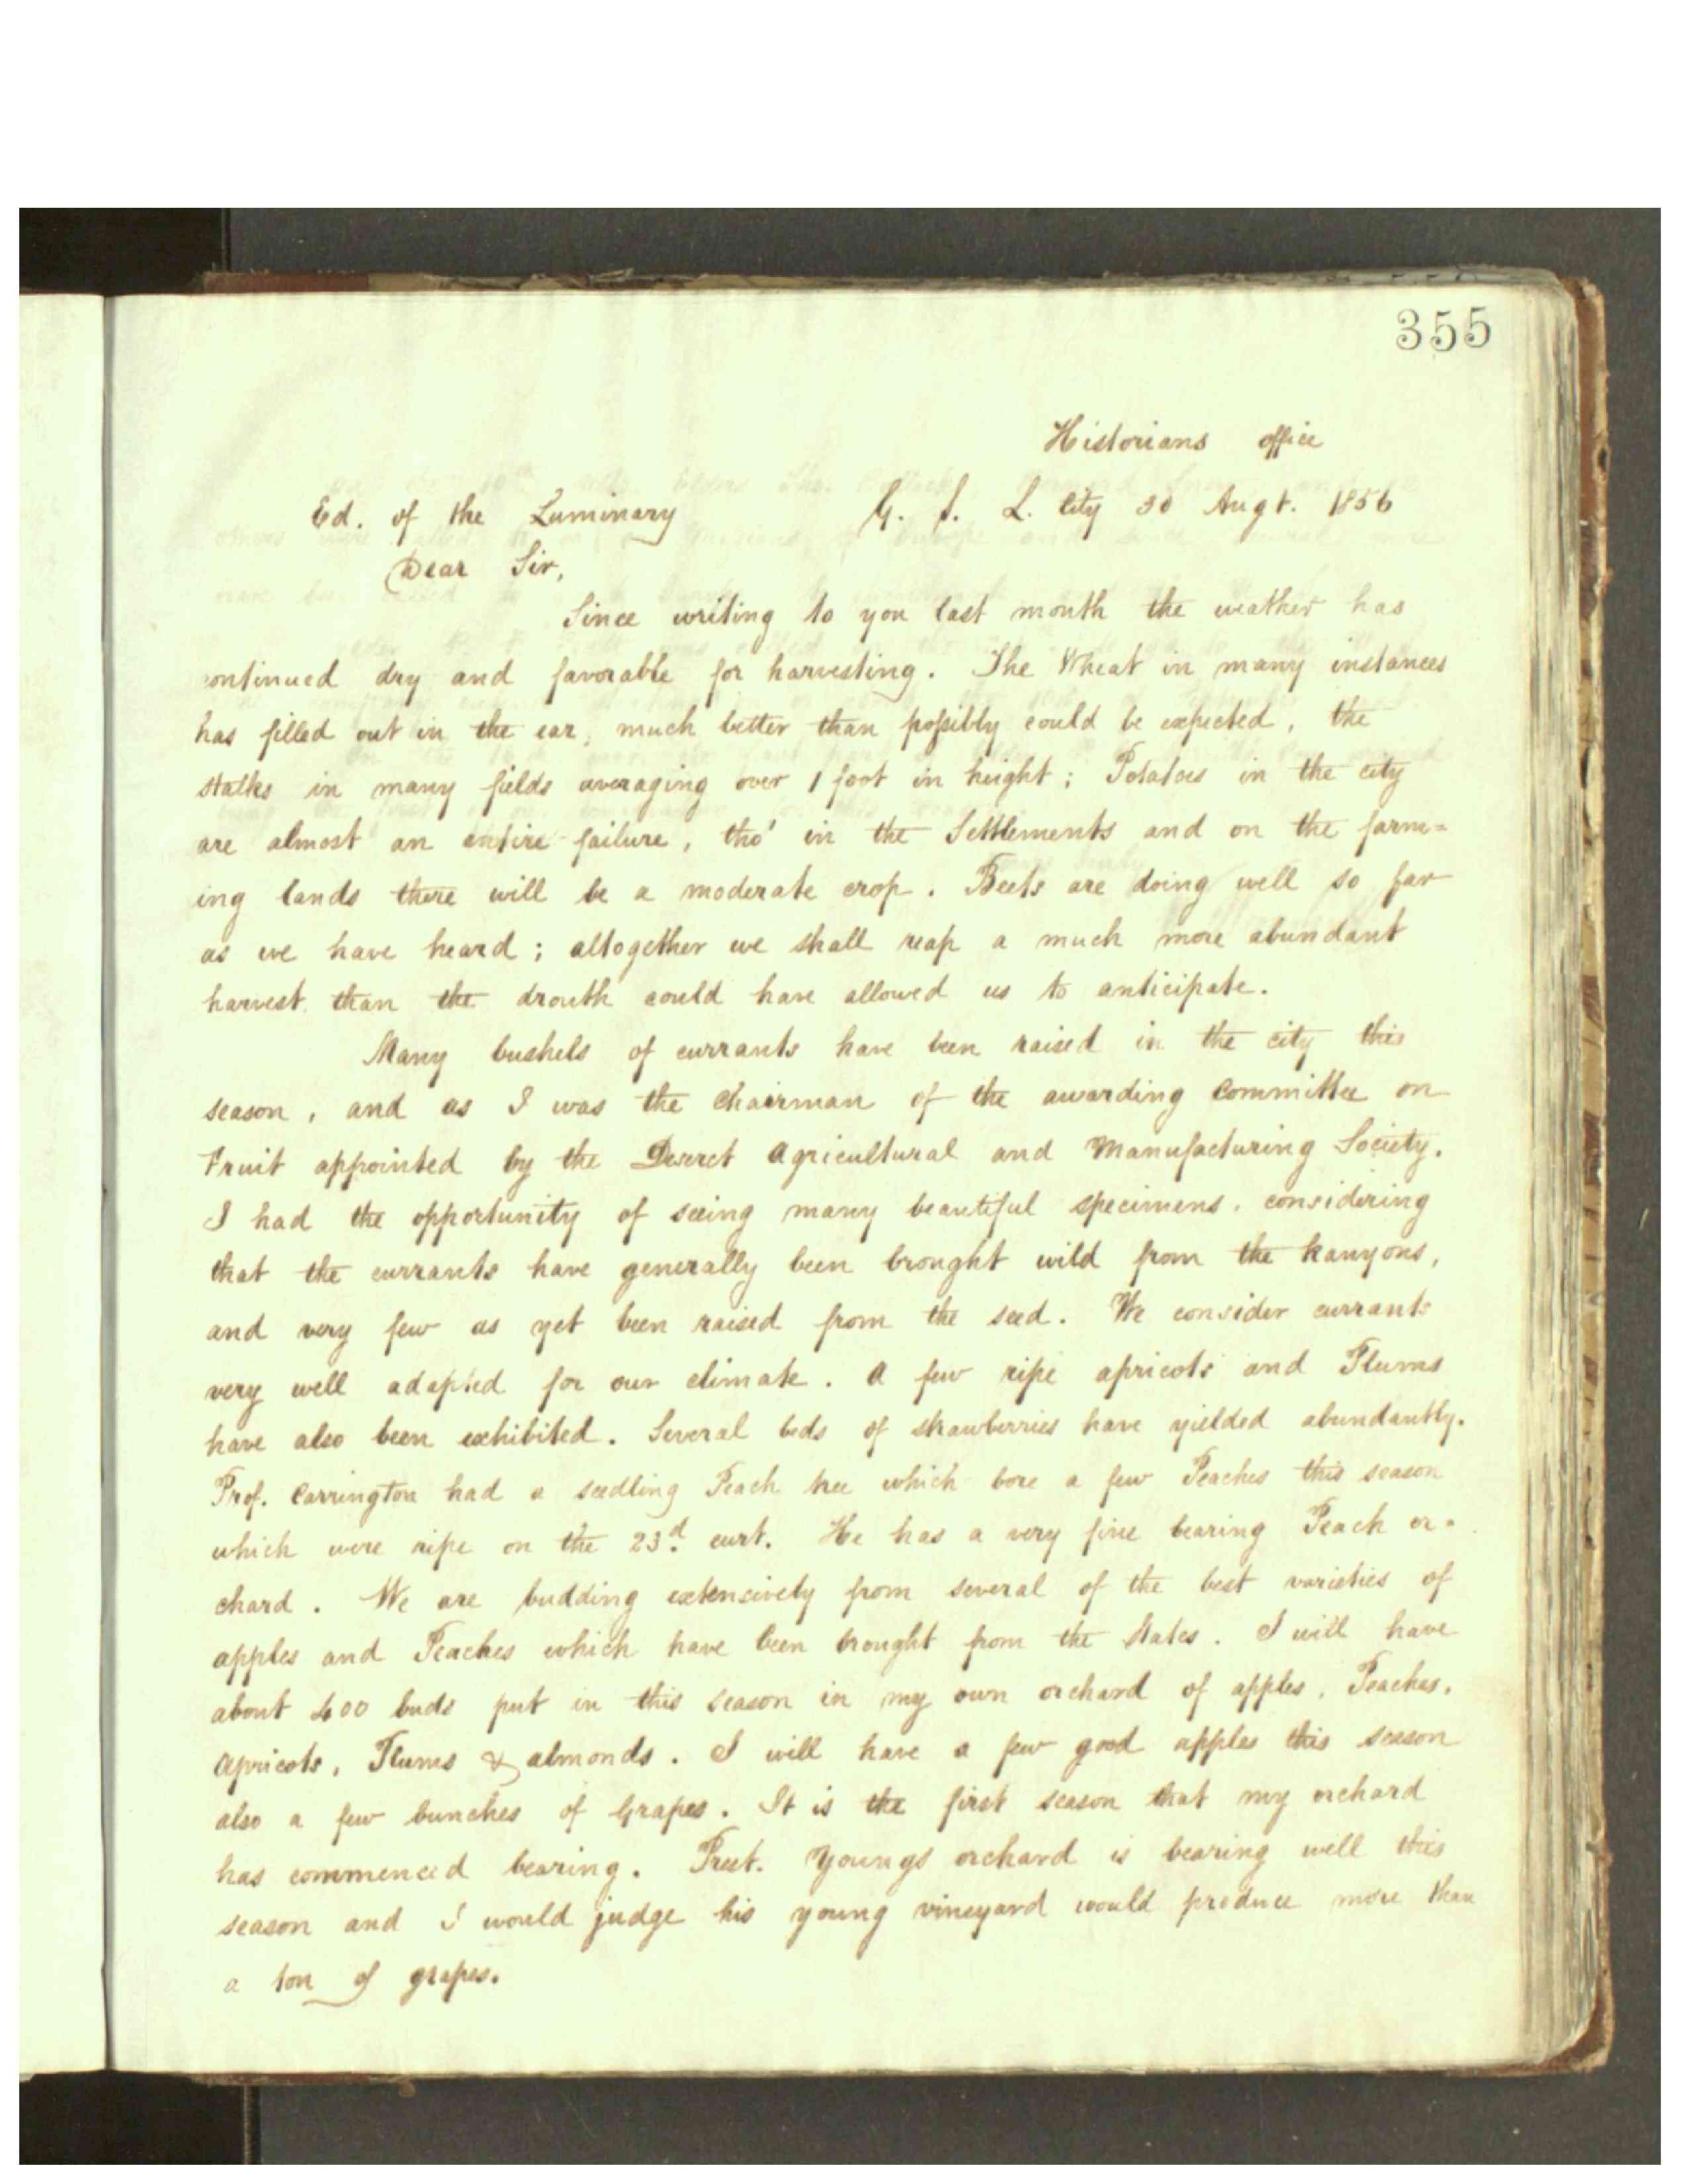 355
Historians office
Ed. of the Luminary G. S. L. City 30 Augt. 1856
Dear Sir,
Since writing to you last month the weather has
continued dry and favorable for harvesting. The Wheat in many instances
has filled out in the ear, much better than possibly could be expected, the
stalks in many fields averaging over 1 foot in height; Potatoes in the city
are almost an entire failure, tho' in the Settlements and on the farm=
ing lands there will be a moderate crop. Beets are doing well so far
as we have heard; altogether we shall reap a much more abundant
harvest than the drouth could have allowed us to anticipate.
Many bushels of currants have been raised in the city this
season, and as I was the Chairman of the awarding Committee on
Fruit appointed by the Deseret Agricultural and Manufacturing Society.
I had the opportunity of seeing many beautiful specimens, considering
that the currants have generally been brought wild from the kanyons,
and very few as yet been raised from the seed. We consider currants
very well adapted for our climate. A few ripe apricots and Plums
have also been exhibited. Several beds of strawberries have yielded abundantly.
Prof. Carrington had a seedling Peach tree which bore a few Peaches this season
which were ripe on the 23d. curt. He has a very fine bearing Peach or=
chard. We are budding extensively from several of the best varieties of
apples and Peaches which have been brought from the States. I will have
about 400 buds put in this season in my own orchard of apples, Peaches,
Apricots, Plums & almonds. I will have a few good apples this season
also a few bunches of Grapes. It is the first season that my orchard
has commenced bearing. Prest. Youngs orchard is bearing well this
season and I would judge his young vineyard would produce more than
a ton of grapes.